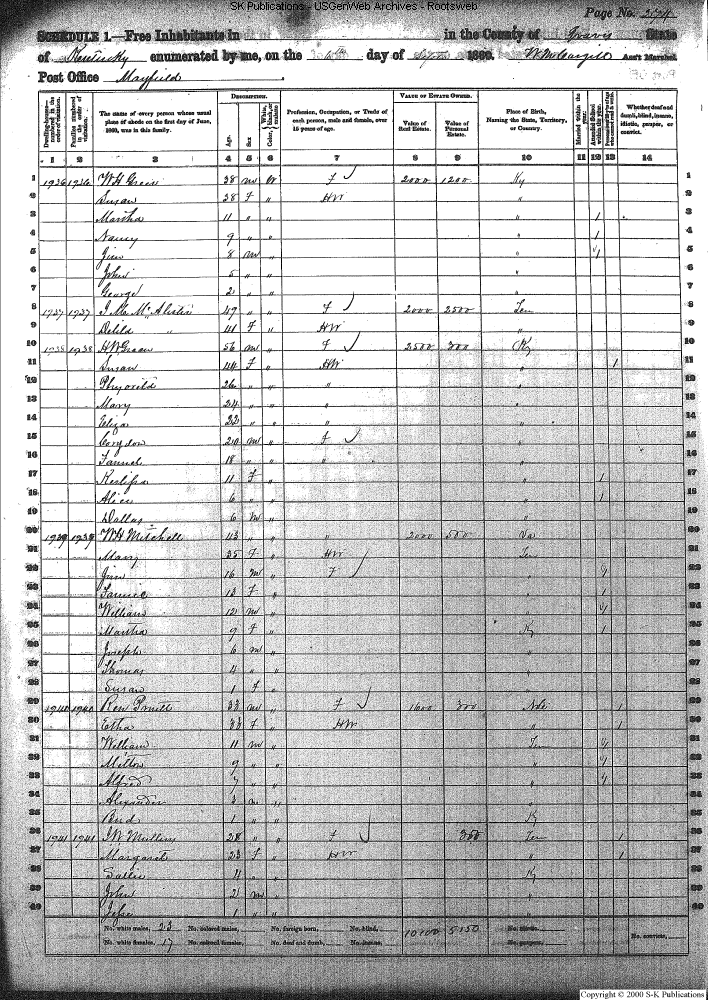 SK Publications - USGenWeb Archives - Rootsweb
Page No. 274
SCHEDULE 1.—Free Inhabitants in in the County of Graves State
of Kentucky enumerated by me, on the day of 1860. Ass't Marshal
Post Office Mayfield
Dwelling-houses—numbered in the order of visitation.
Families numbered in the order of visitation.
The name of every person whose usual place of abode on the first day of June, 1860, was in this family.
DESCRIPTION.
Age.
Sex
Color, White, black, or mulatto
Profession, Occupation, or Trade of each person, male and female, over 15 years of age.
VALUE OF ESTATE OWNED.
Value of Real Estate.
Value of Personal Estate.
Place of Birth, Naming the State, Territory, or Country.
Married within the year.
Attended School within the year.
Whether deaf and dumb, blind, insane, idiotic, pauper, or convict.
1 2 3 4 5 6 7 8 9 10 11 12 13 14
1 1936 1936 W H Green 38 m W F 2000 1200 Ky 1
2 Susan 38 F " HW " 2
3 Martha 11 " " " 1 3
4 Nancy 9 " " " 1 4
5 Jim 8 m " " 1 5
6 John 5 " " " 6
7 George 2 " " 7
8 1937 1937 J M McAlister 49 " " F 2000 2500 Ten 8
9 Delila " 41 F " HW " 9
10 1938 1938 H W Green 56 m " F 2500 300 Ky 10
11 Susan 44 F " HW 1 11
12 26 " " " 12
13 Mary 24 " " " 13
14 Eliza 22 " " " 14
15 Corydon 20 m " F " 15
16 18 " " " " 16
17 11 F " " 1 17
18 Alice 6 " " " 1 18
19 Dallas 6 m " " 19
20 1939 1939 W H Mitchell 43 " " " 2000 500 Va 20
21 Mary 35 F " HW Ten 21
22 Jim 16 m " F " 1 22
23 Fannie 13 F " " 1 23
24 William 12 m " " 1 24
25 Martha 9 F " Ky 1 25
26 Joseph 6 m " " 26
27 Thomas 4 " " " 27
28 Susan 1 F " " 28
29 1940 1940 Ren Pruitt 33 m " F 1600 300 1 29
30 Etha 33 F " HW " 1 30
31 William 11 m " Ten 1 31
32 Milton 9 " " " 1 32
33 Alfred 7 " " " 1 33
34 Alexander 3 m " " 34
35 1 " " Ky 35
36 1941 1941 J W Mullins 28 " " F 300 Ten 1 36
37 Margaret 23 F " HW " 1 37
38 Sallie 4 " " Ky 38
39 John 2 m " " 39
40 Jesse 1 " " " 40
No. white males, 23 No. colored males, No. foreign born, No. blind, 10100 5150 No. idiotic,
No. white females, 17 No. colored females, No. deaf and dumb, No. insane, No. paupers, No. convicts,
Copyright © 2000 S-K Publications